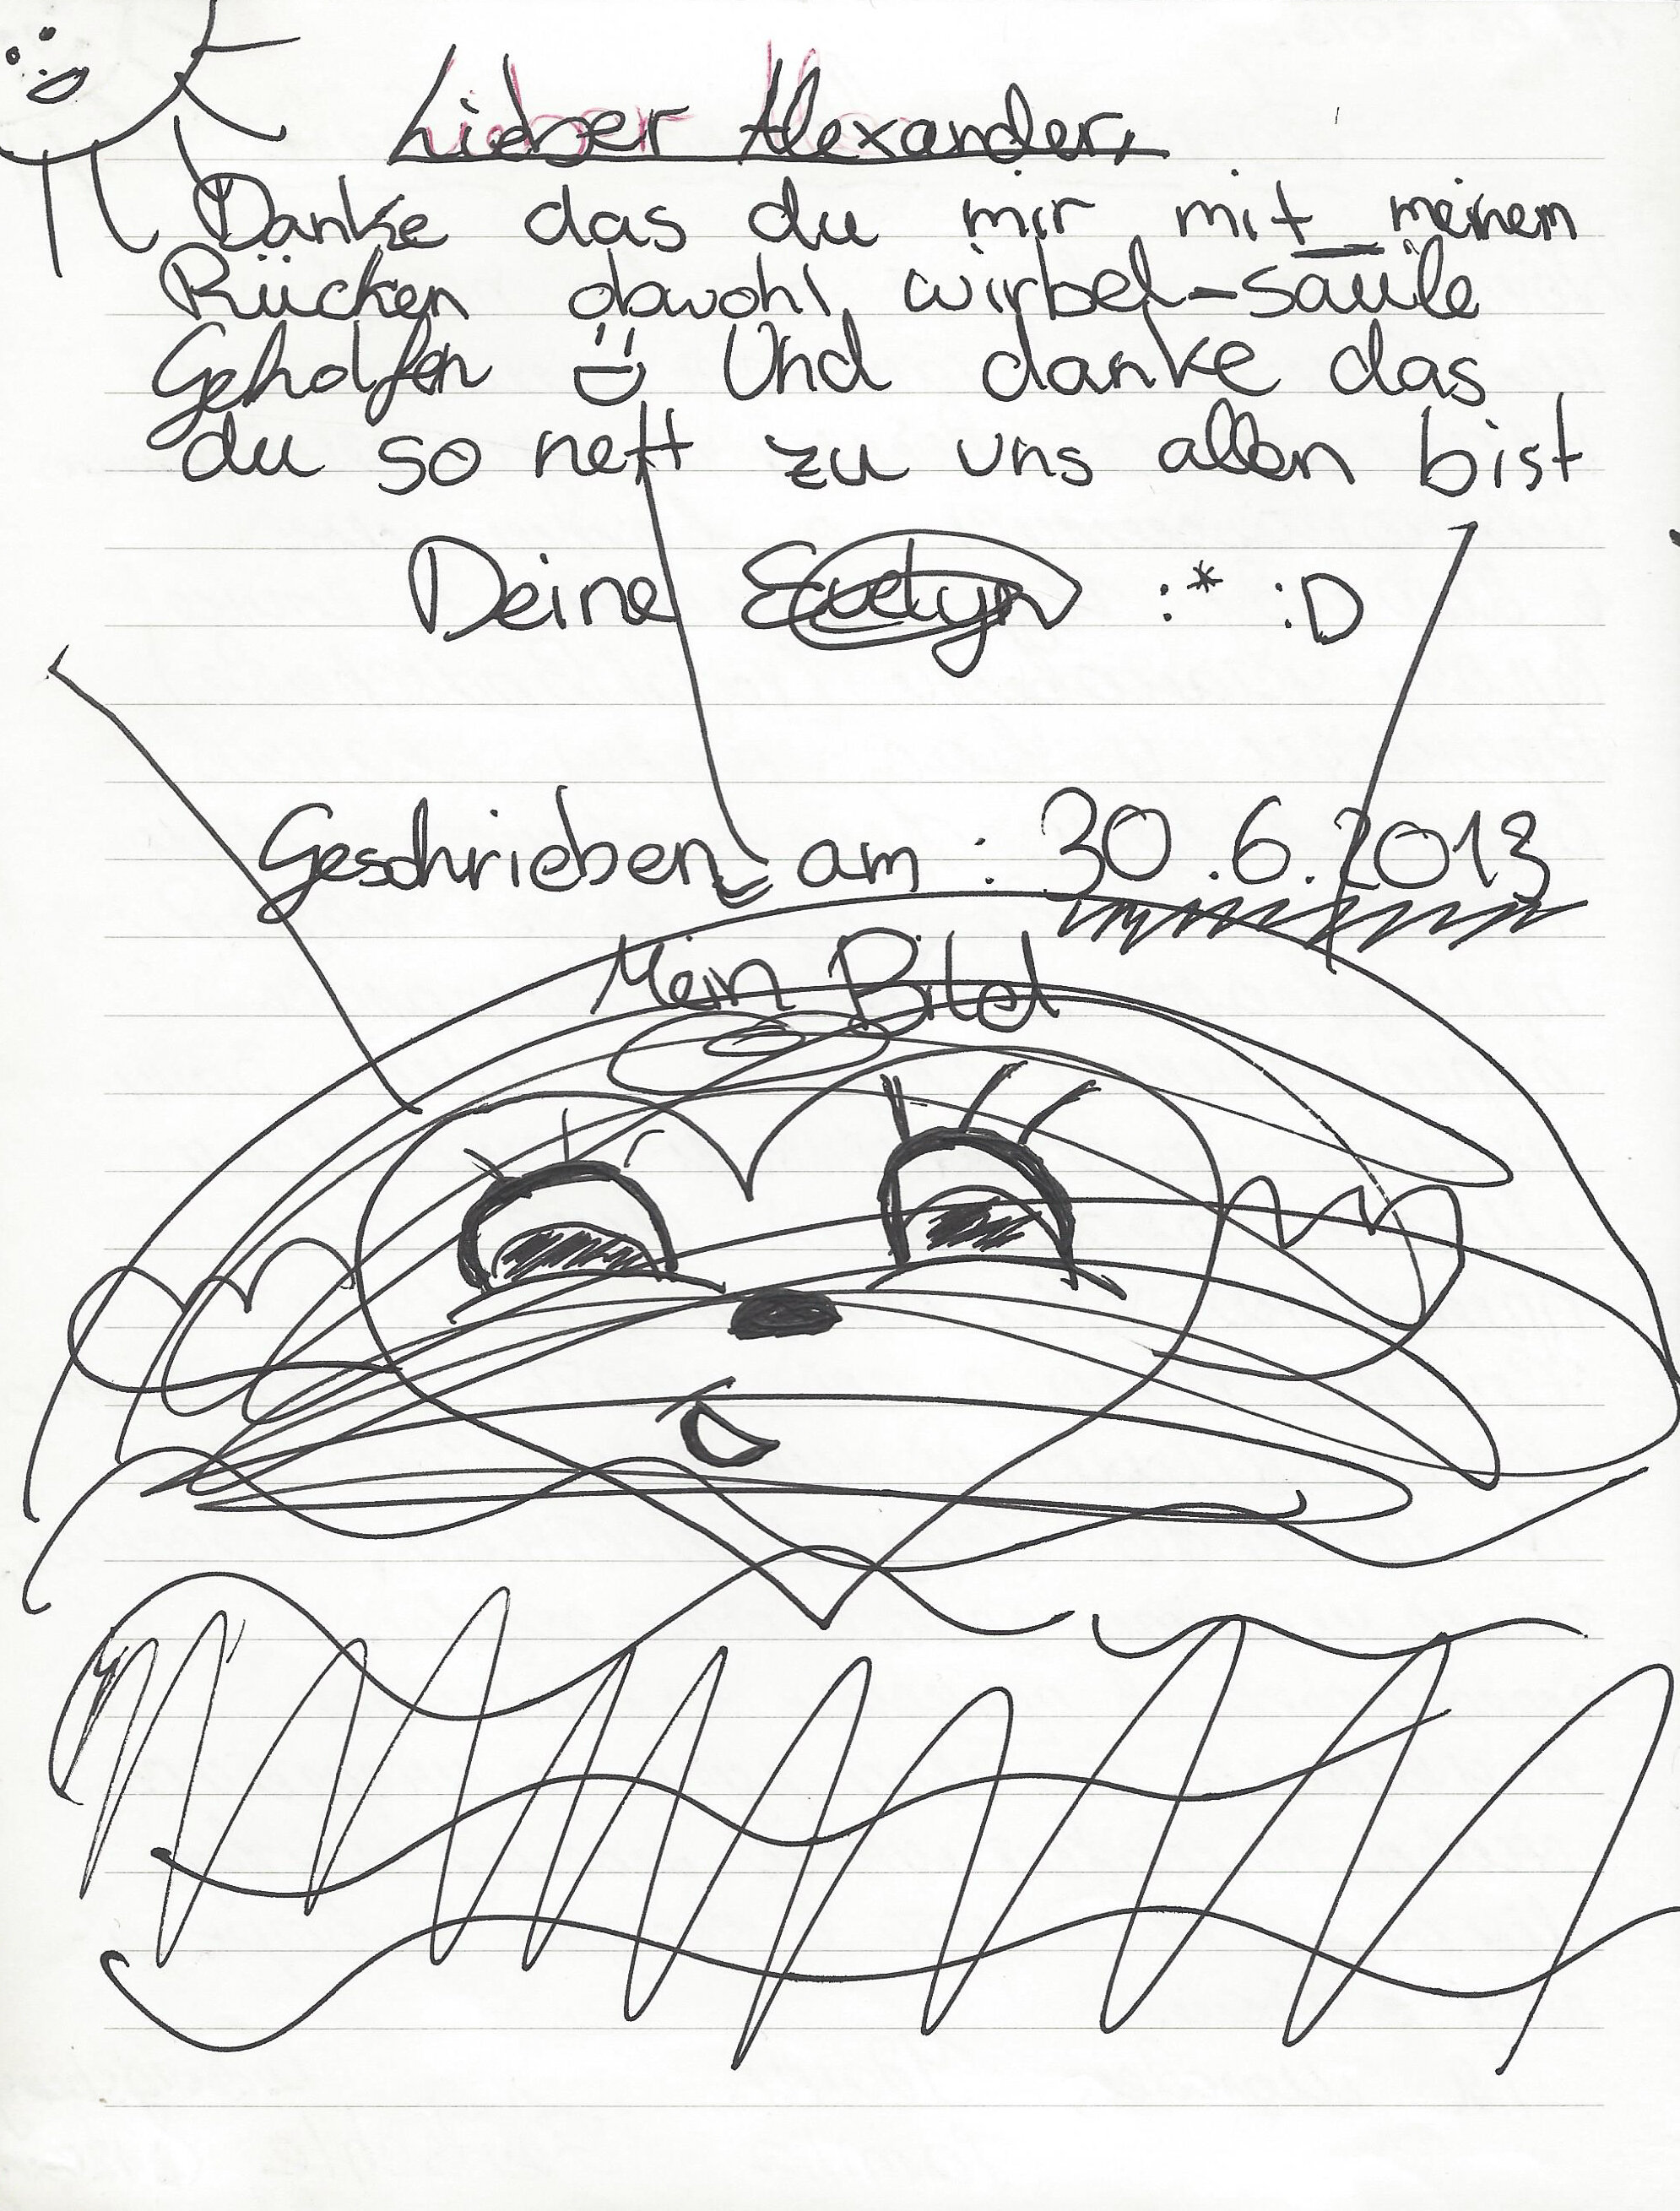 Lieber Alexander,
Danke das du mir mit meinem
Rücken obwohl wirbel-säule
Geholfen Und danke das
du so nett zu uns allen bist
Deine Evelyn :* :D
Geschrieben am : 30.6.2013
Mein Bild